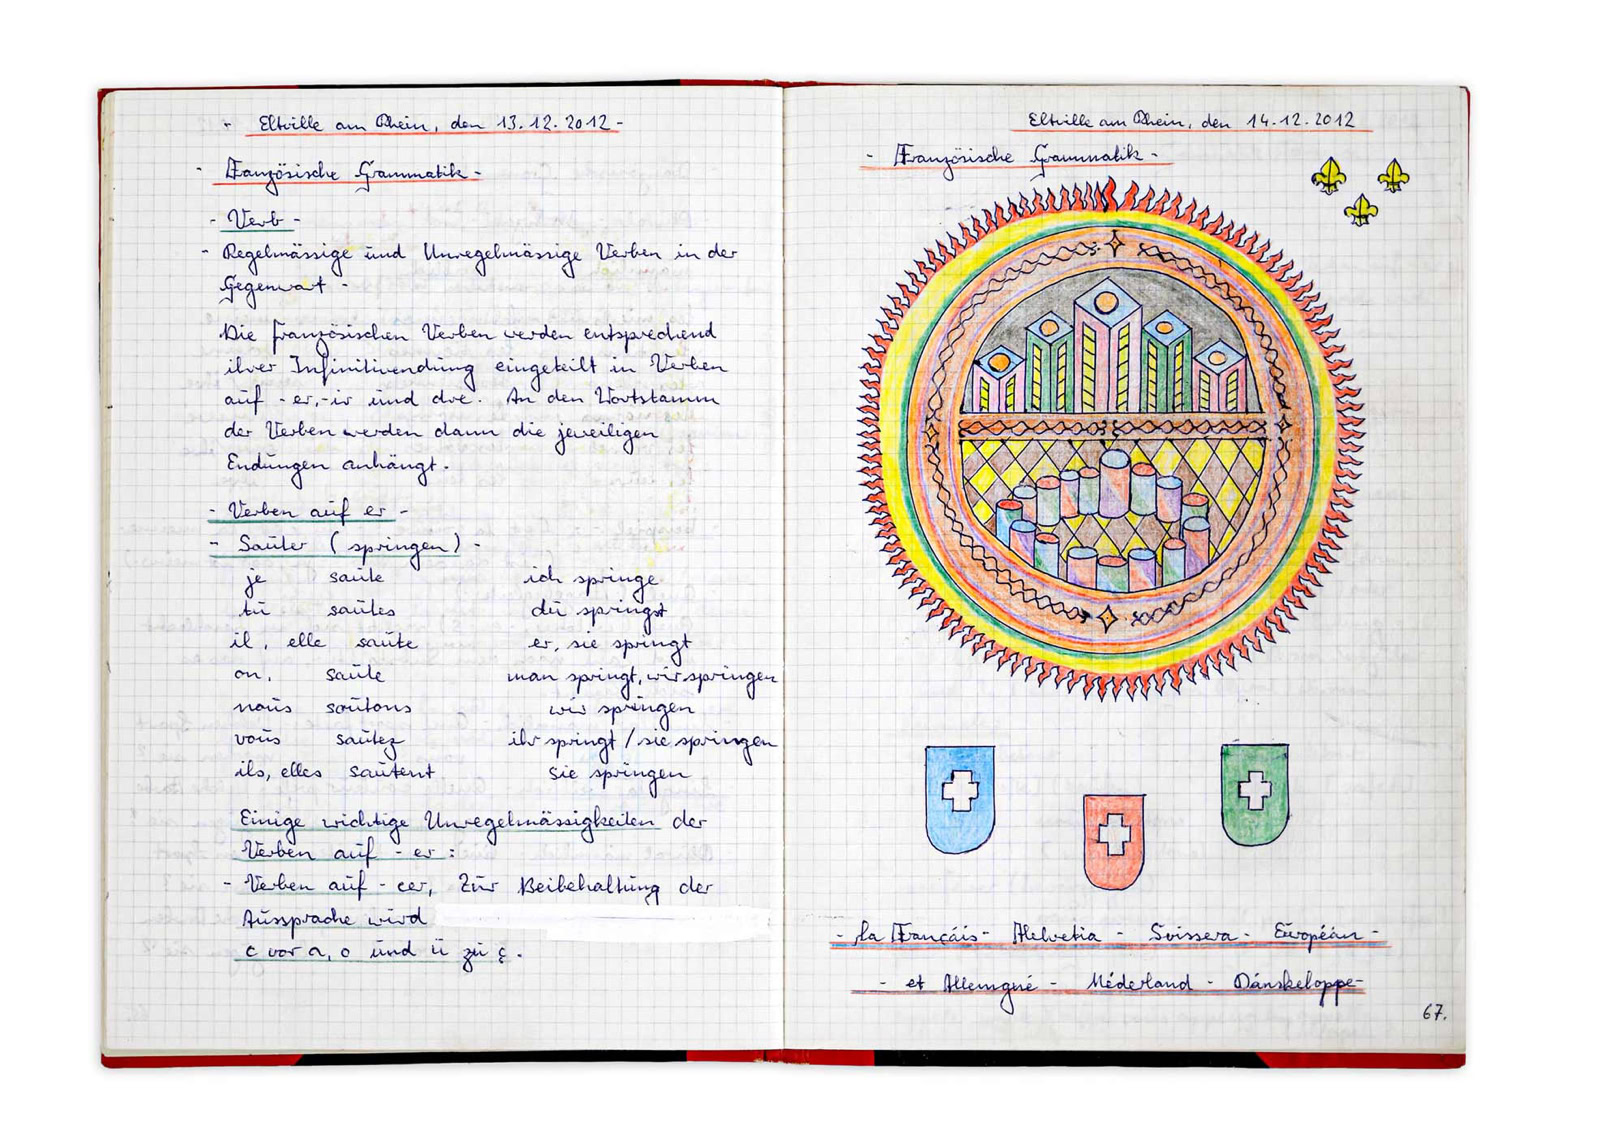 - Eltville am Rhein, den 13.12.2012 -
- Französische Grammatik -
- Verb -
- Regelmässige und Unregelmässige Verben in der
Gegenwart -
Die französischen Verben werden entsprechend
ihrer Infinitivendung eingeteilt in Verben
auf -er, -ir und dre. An den Wortstamm
der Verben werden dann die jeweiligen
Endungen anhängt.
- Verben auf er -
- Sauter (springen) -
je saute ich springe
tu sautes du springst
il, elle saute er, sie springt
on, saute man springt, wir springen
nous sautons wir springen
vous sautez ihr springt / sie springen
ils, elles sautent sie springen
Einige wichtige Unregelmässigkeiten der
Verben auf -er:
- Verben auf -cer, Zur Beibehaltung der
Aussprache wird
c vor a, o und u zu ç.
Eltville am Rhein, den 14.12.2012
- Französische Grammatik -
- la Françáis - Helvetia - Svissera - Européán -
- et Allemgné - Néderland - Dánskeloppe -
67.